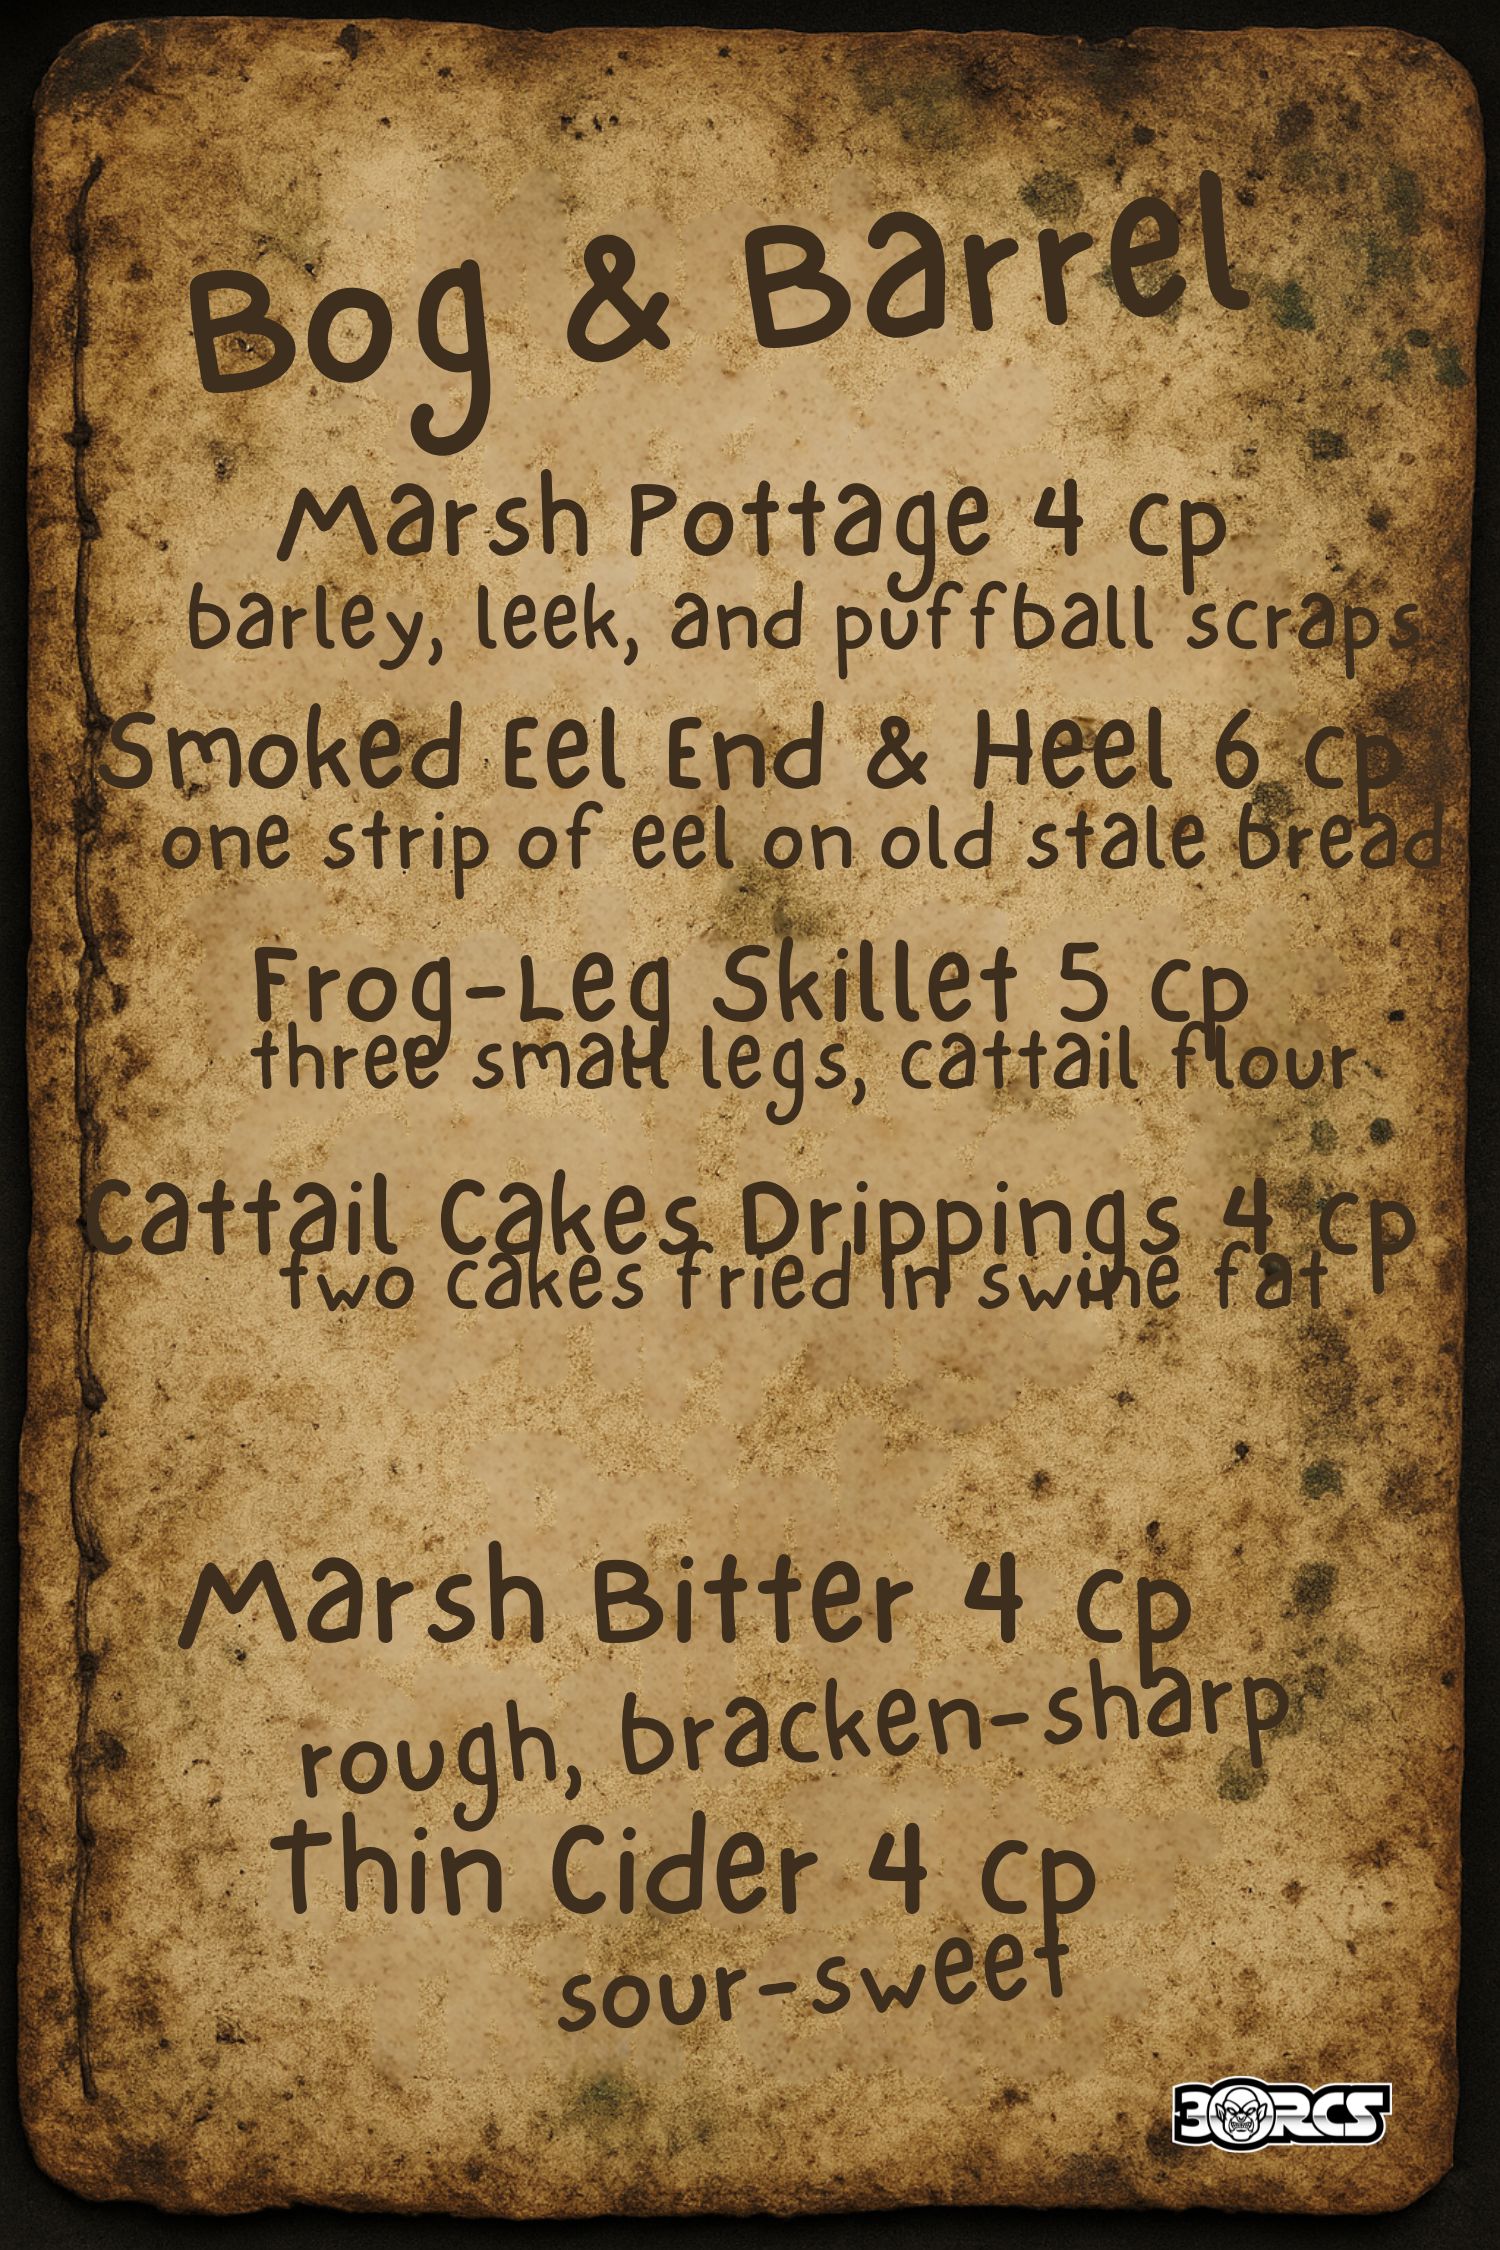 Bog & Barrel
Marsh Pottage 4 cp
barley, leek, and puffball scraps
Smoked Eel End & Heel 6 cp
one strip of eel on old stale bread
Frog-Leg Skillet 5 cp
three small legs, cattail flour
Cattail Cakes Drippings 4 cp
two cakes fried in swine fat
Marsh Bitter 4 cp
rough, bracken-sharp
Thin Cider 4 cp
sour-sweet
3ORCS